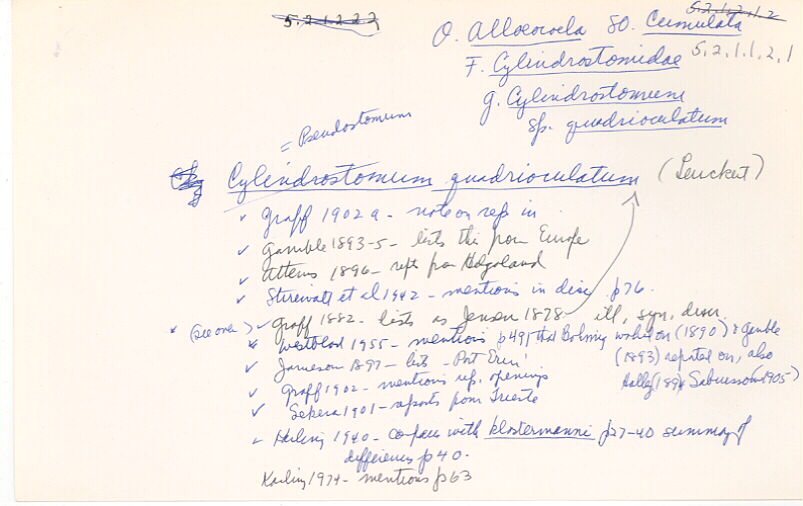 5.2.1.2.2.2
5.2.1.2.1.2
O. Alloeocoela SO. Cumulata
F. Cylindrostomidae 5.2.1.1.2.1
g. Cylindrostomum
sp. quadrioculatum
= Pseudostomum
Cylindrostomum quadrioculatum (Leuckart)
✓ Graff 1902a - note on rep in
✓ Gamble 1893-5 - lists this from Europe
✓ Attems 1896 - repts from Helgoland
✓ Stirewalt et al 1942 - mentions in disc p76.
* (see over) ✓ Graff 1882 - lists as Jensen 1878 - ill, syn, descr.
* Westblad 1955 - mentions p491 that Bohmig worked on (1890) & Gamble
(1893) reported on, also
✓ Jameson 1897 - lists - Port Erin
Sabussow (1905)
✓ Graff 1902 - mentions rep. openings
✓ Sekera 1901 - reports from Trieste
✓ Karling 1940 - compares with klostermanni p27-40 summary of
differences p40.
Karling 1974 - mentions p63